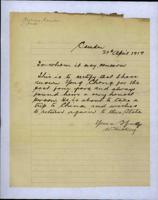 Cossack
29th April 1919
To whom it may concern
This is to certify that I have
known Yong Chong for the
past four years and always
found him a very honest
person. He is about to take a
trip to China and wishes
to return again to this State
Yours Truly